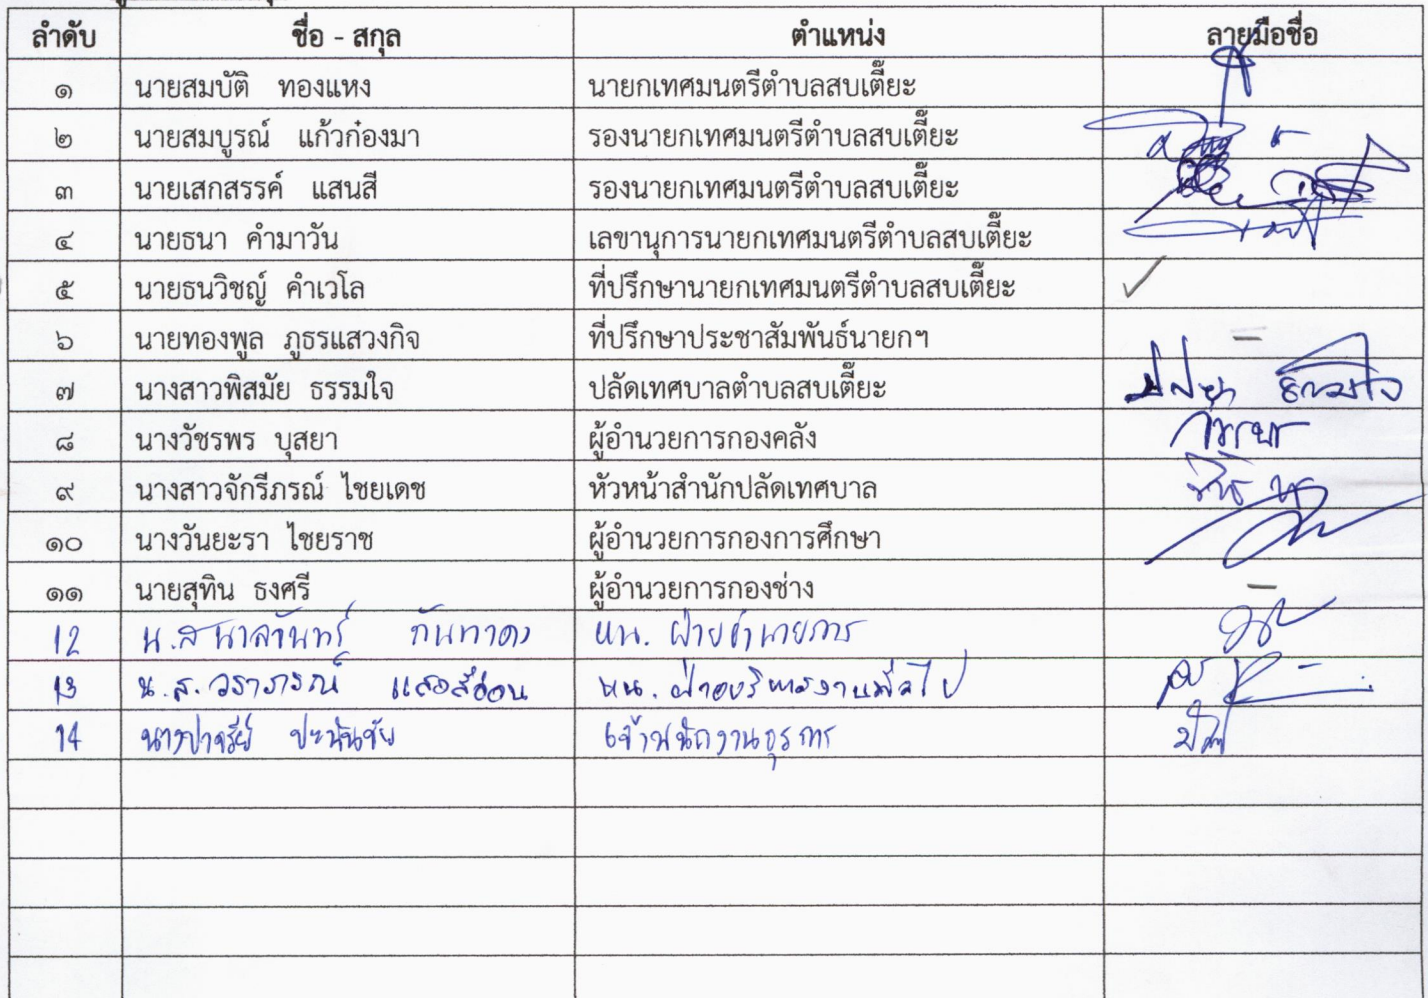 ลำดับ ชื่อ - สกุล ตำแหน่ง ลายมือชื่อ
๑ นายสมบัติ ทองแหง นายกเทศมนตรีตำบลสบเตี๊ยะ
๒ นายสมบูรณ์ แก้วก๋องมา รองนายกเทศมนตรีตำบลสบเตี๊ยะ
๓ นายเสกสรรค์ แสนสี รองนายกเทศมนตรีตำบลสบเตี๊ยะ
๔ นายธนา คำมาวัน เลขานุการนายกเทศมนตรีตำบลสบเตี๊ยะ
๕ นายธนวิชญ์ คำเวโล ที่ปรึกษานายกเทศมนตรีตำบลสบเตี๊ยะ ✓
๖ นายทองพูล ภูธรแสวงกิจ ที่ปรึกษาประชาสัมพันธ์นายกฯ –
๗ นางสาวพิสมัย ธรรมใจ ปลัดเทศบาลตำบลสบเตี๊ยะ
๘ นางวัชรพร บุสยา ผู้อำนวยการกองคลัง
๙ นางสาวจักรีภรณ์ ไชยเดช หัวหน้าสำนักปลัดเทศบาล
๑๐ นางวันยะรา ไชยราช ผู้อำนวยการกองการศึกษา
๑๑ นายสุทิน ธงศรี ผู้อำนวยการกองช่าง –
12 น.ส หน. ฝ่ายอำนวยการ
13 น.ส. วราภรณ์ แสงสีอ่อน หน. ฝ่ายบริหารงานทั่วไป
14 นางปาจรีย์ ปะนันชัย เจ้าพนักงานธุรการ